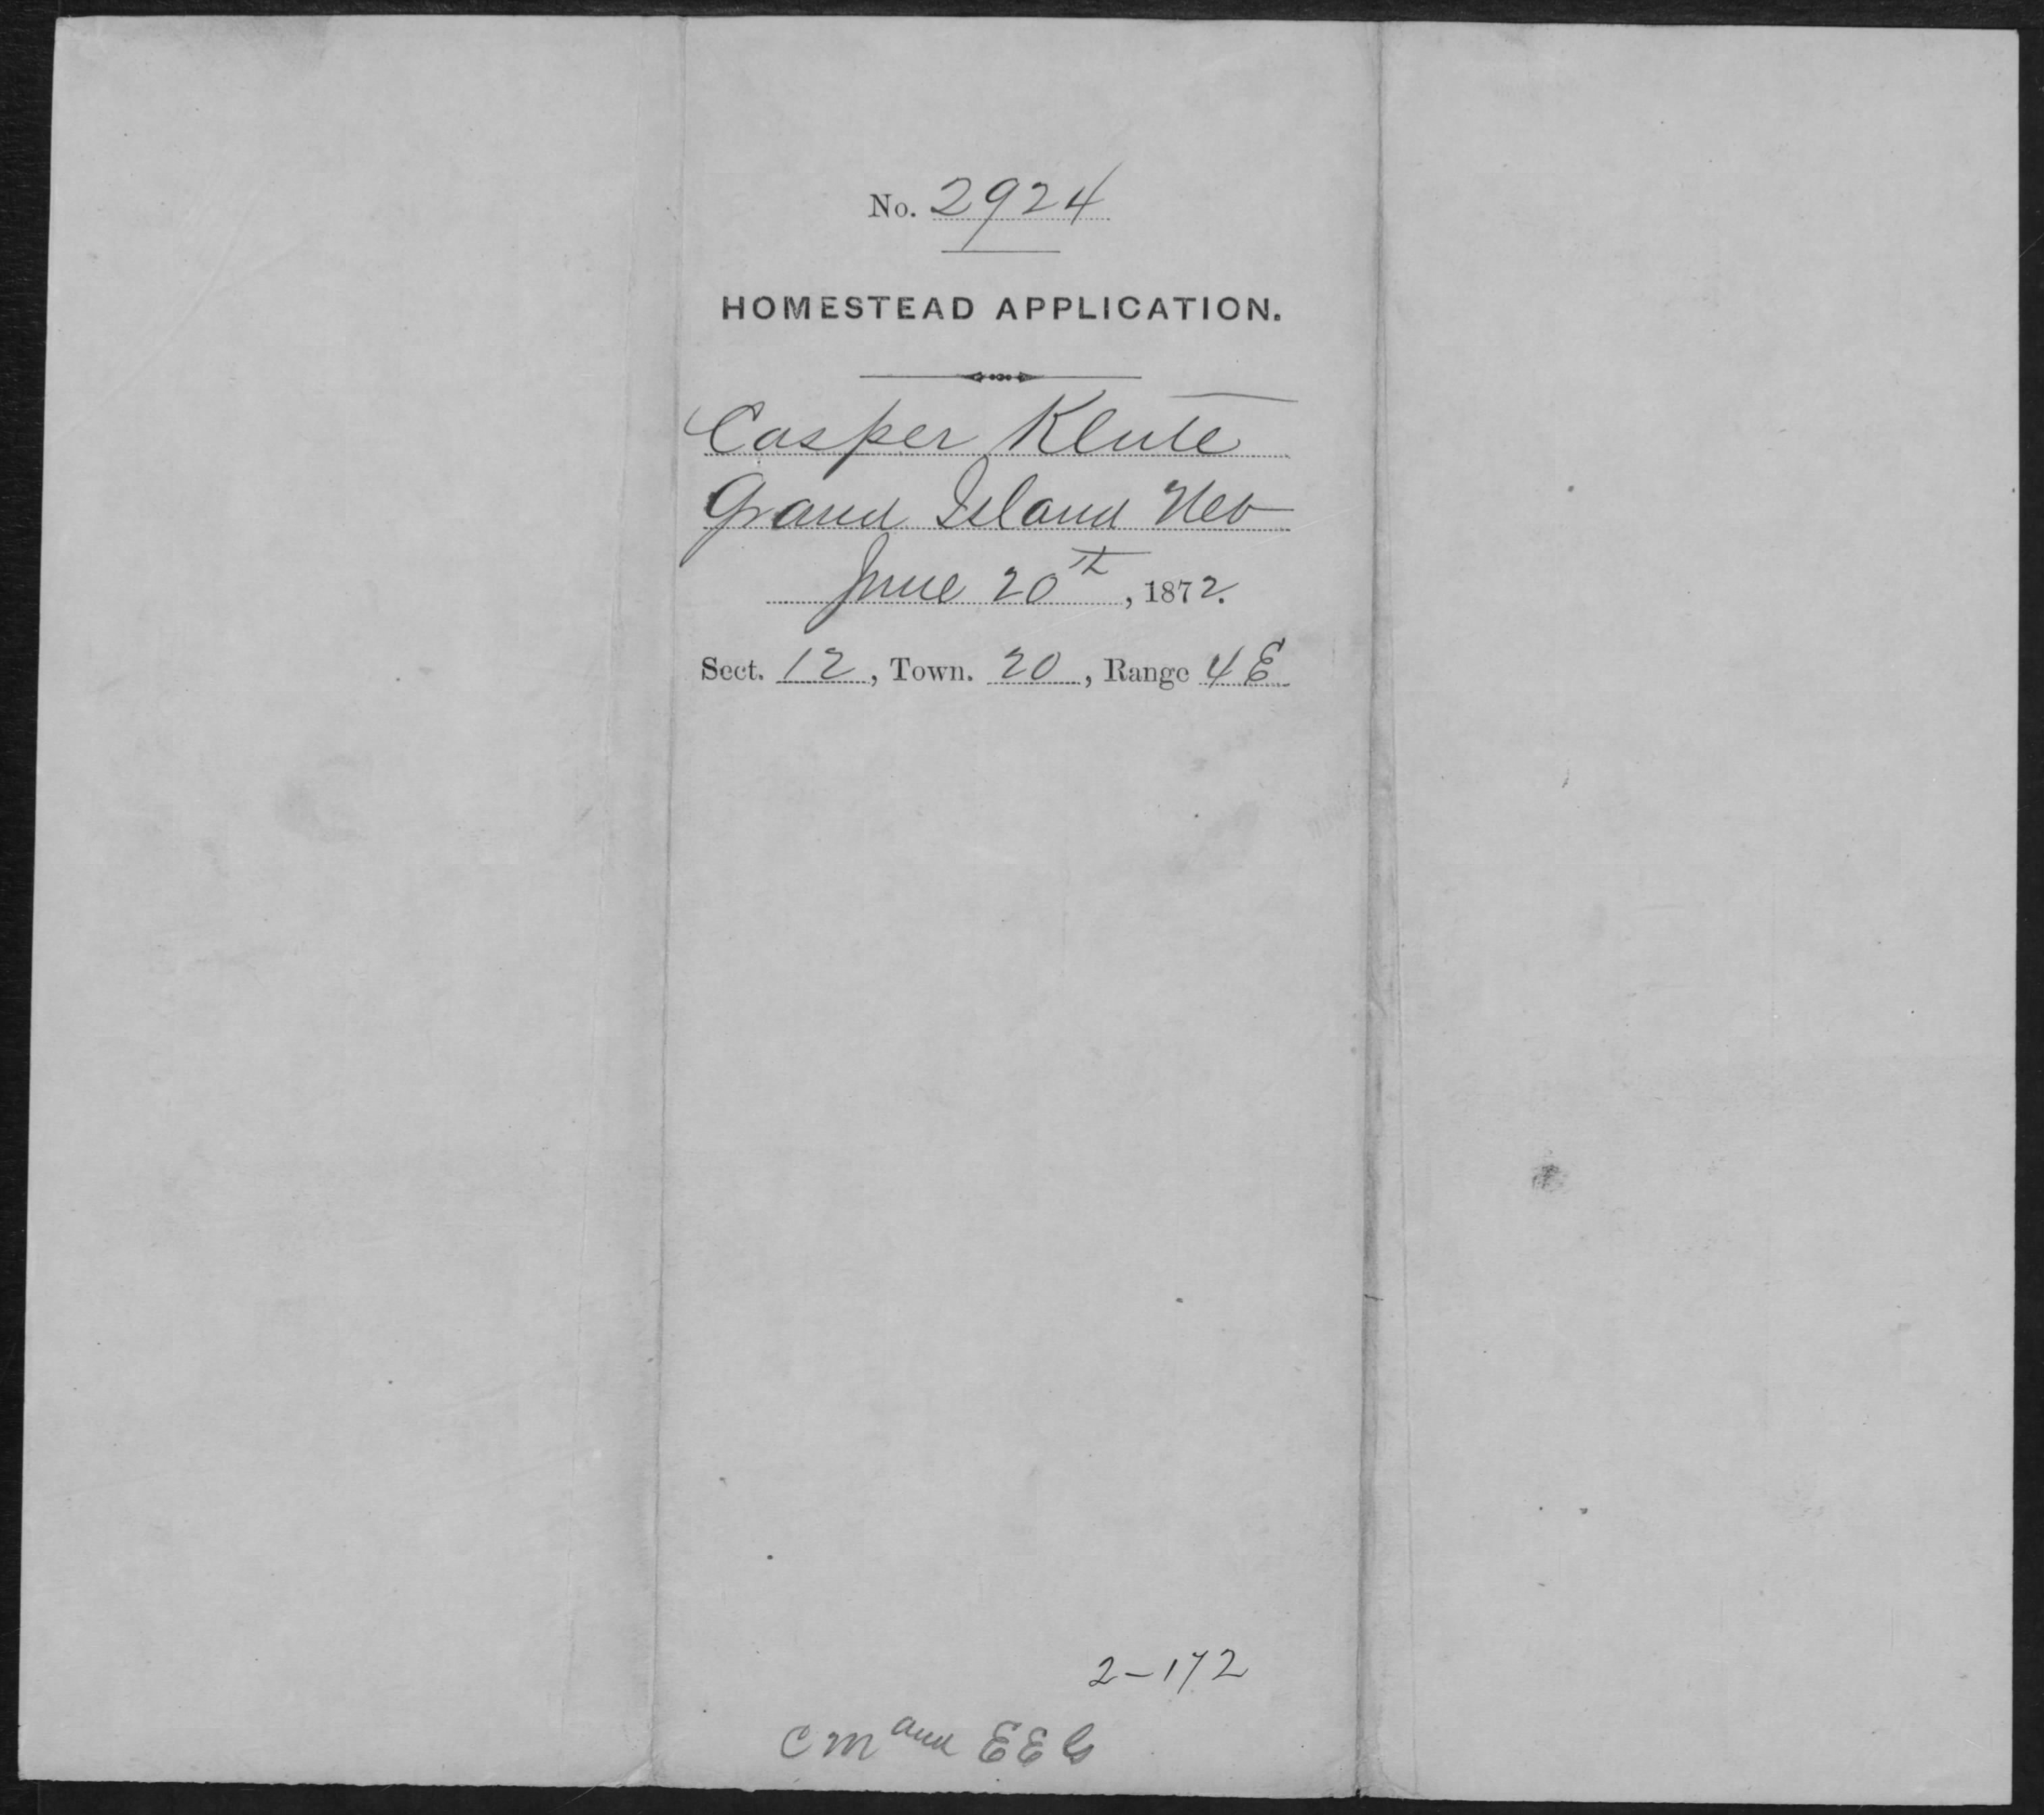 No. 2924
HOMESTEAD APPLICATION.
Casper Klute
Grand Island Neb
June 20th, 1872.
Sect. 12, Town. 20, Range 4 E
2-172
C M and E E G